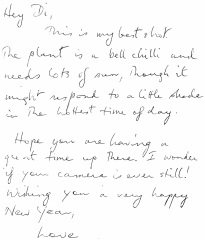 Hey Di,
This is my best shot
The plant is a bell chilli and
needs lots of sun, though it
might respond to a little shade
in the hottest time of day.
Hope you are having a
great time up there. I wonder
if your camera is ever still!
Wishing you a very happy
New Year,
Love